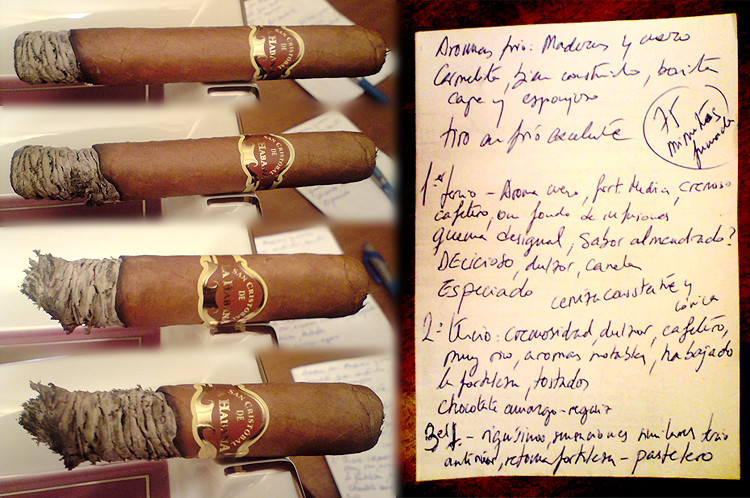 SAN CRISTOBAL
DE
HABANA
SAN CRISTOBAL
DE
HABANA
SAN CRISTOBAL
DE
LA HABANA
SAN CRISTOBAL
DE
HABANA
Aromas frio: Maderas y cuero
Carmelita, bien construido, bonita
capa y esponjoso
tiro en frio excelente
75
minutos
fumada
1er tercio - Aroma cuero, fort. Media, cremoso
cafetero, un fondo de infusiones
quema desigual, Sabor almendrado?
DELICIOSO, dulzor, canela
Especiado ceniza consistente y
cónica
2º tercio: cremosidad, dulzor, cafetero,
muy rico, aromas notables, ha bajado
la fortaleza, tostados
chocolate amargo - regaliz
3er - riquísimo, sensaciones similares tercio
anterior, retoma fortaleza - pastelero